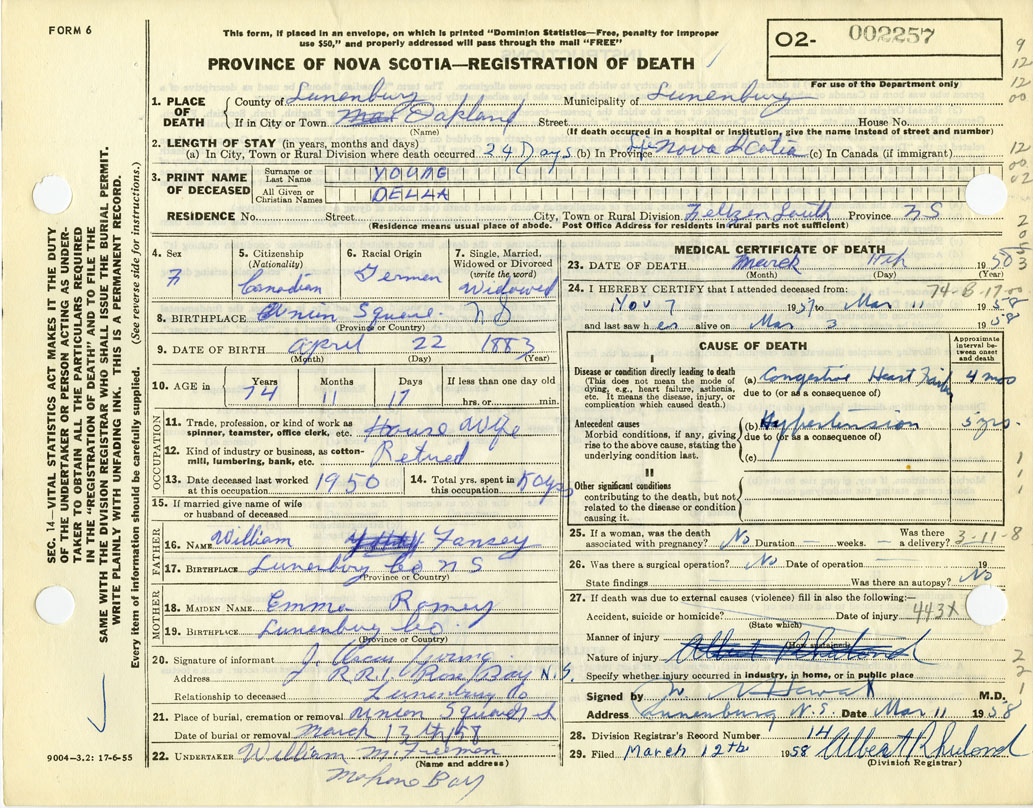 FORM 6
This form, if placed in an envelope, on which is printed "Dominion Statistics—Free, penalty for improper
use $50," and properly addressed will pass through the mail "FREE"
O2- 002257
For use of the Department only
PROVINCE OF NOVA SCOTIA—REGISTRATION OF DEATH
1. PLACE OF DEATH { County of Lunenburg Municipality of Lunenburg
If in City or Town Oakland Street House No.
(Name) (If death occurred in a hospital or institution, give the name instead of street and number)
2. LENGTH OF STAY (in years, months and days)
(a) In City, Town or Rural Division where death occurred 24 Days (b) In Province Nova Scotia (c) In Canada (if immigrant)
3. PRINT NAME OF DECEASED { Surname or Last Name YOUNG
All Given or Christian Names DELLA
RESIDENCE No. Street City, Town or Rural Division Feltzen South Province NS
(Residence means usual place of abode. Post Office Address for residents in rural parts not sufficient)
4. Sex F
5. Citizenship (Nationality) Canadian
6. Racial Origin German
7. Single, Married, Widowed or Divorced (write the word) Widowed
8. BIRTHPLACE Union Square. NS
(Province or Country)
9. DATE OF BIRTH April 22 1883
(Month) (Day) (Year)
10. AGE in Years 74 Months 11 Days 17 If less than one day old hrs. or min.
OCCUPATION
11. Trade, profession, or kind of work as spinner, teamster, office clerk, etc. House Wife
12. Kind of industry or business, as cotton-mill, lumbering, bank, etc. Retired
13. Date deceased last worked at this occupation 1950
14. Total yrs. spent in this occupation
15. If married give name of wife or husband of deceased
FATHER
16. NAME William Fancey
17. BIRTHPLACE Lunenburg Co N S
(Province or Country)
MOTHER
18. MAIDEN NAME Emma Romey
19. BIRTHPLACE Lunenburg Co.
(Province or Country)
20. Signature of informant J.
Address R R 1 Rose Bay N.S.
Relationship to deceased Lunenburg Co
21. Place of burial, cremation or removal Union Square
Date of burial or removal March 13th/58
22. UNDERTAKER William
(Name and address)
Mahone Bay
9004—3.2: 17-6-55
MEDICAL CERTIFICATE OF DEATH
23. DATE OF DEATH March 11th 1958
(Month) (Day) (Year)
24. I HEREBY CERTIFY that I attended deceased from: 74-B-17-00
Nov 7 1957 to Mar 11 1958
and last saw her alive on Mar 3 1958
CAUSE OF DEATH
Approximate interval between onset and death
I
Disease or condition directly leading to death
(This does not mean the mode of dying, e.g., heart failure, asthenia, etc. It means the disease, injury, or complication which caused death.)
(a) Congestive Heart Failure 4 mos
due to (or as a consequence of)
Antecedent causes
Morbid conditions, if any, giving rise to the above cause, stating the underlying condition last.
(b) Hypertension 5 yrs.
due to (or as a consequence of)
(c)
II
Other significant conditions
contributing to the death, but not related to the disease or condition causing it.
25. If a woman, was the death associated with pregnancy? No Duration — weeks. — Was there a delivery? 3-11-8
26. Was there a surgical operation? No Date of operation 19
State findings Was there an autopsy? No
27. If death was due to external causes (violence) fill in also the following:—
Accident, suicide or homicide? Date of injury 443X
(State which)
Manner of injury
(How sustained)
Nature of injury
Specify whether injury occurred in industry, in home, or in public place
Signed by M.D.
Address Lunenburg N.S. Date Mar 11 1958
28. Division Registrar's Record Number 14
29. Filed March 12th 1958 Albert
(Division Registrar)
SEC. 14—VITAL STATISTICS ACT MAKES IT THE DUTY
OF THE UNDERTAKER OR PERSON ACTING AS UNDER-
TAKER TO OBTAIN ALL THE PARTICULARS REQUIRED
IN THE "REGISTRATION OF DEATH" AND TO FILE THE
SAME WITH THE DIVISION REGISTRAR WHO SHALL ISSUE THE BURIAL PERMIT.
WRITE PLAINLY WITH UNFADING INK. THIS IS A PERMANENT RECORD.
Every item of information should be carefully supplied. (See reverse side for instructions.)